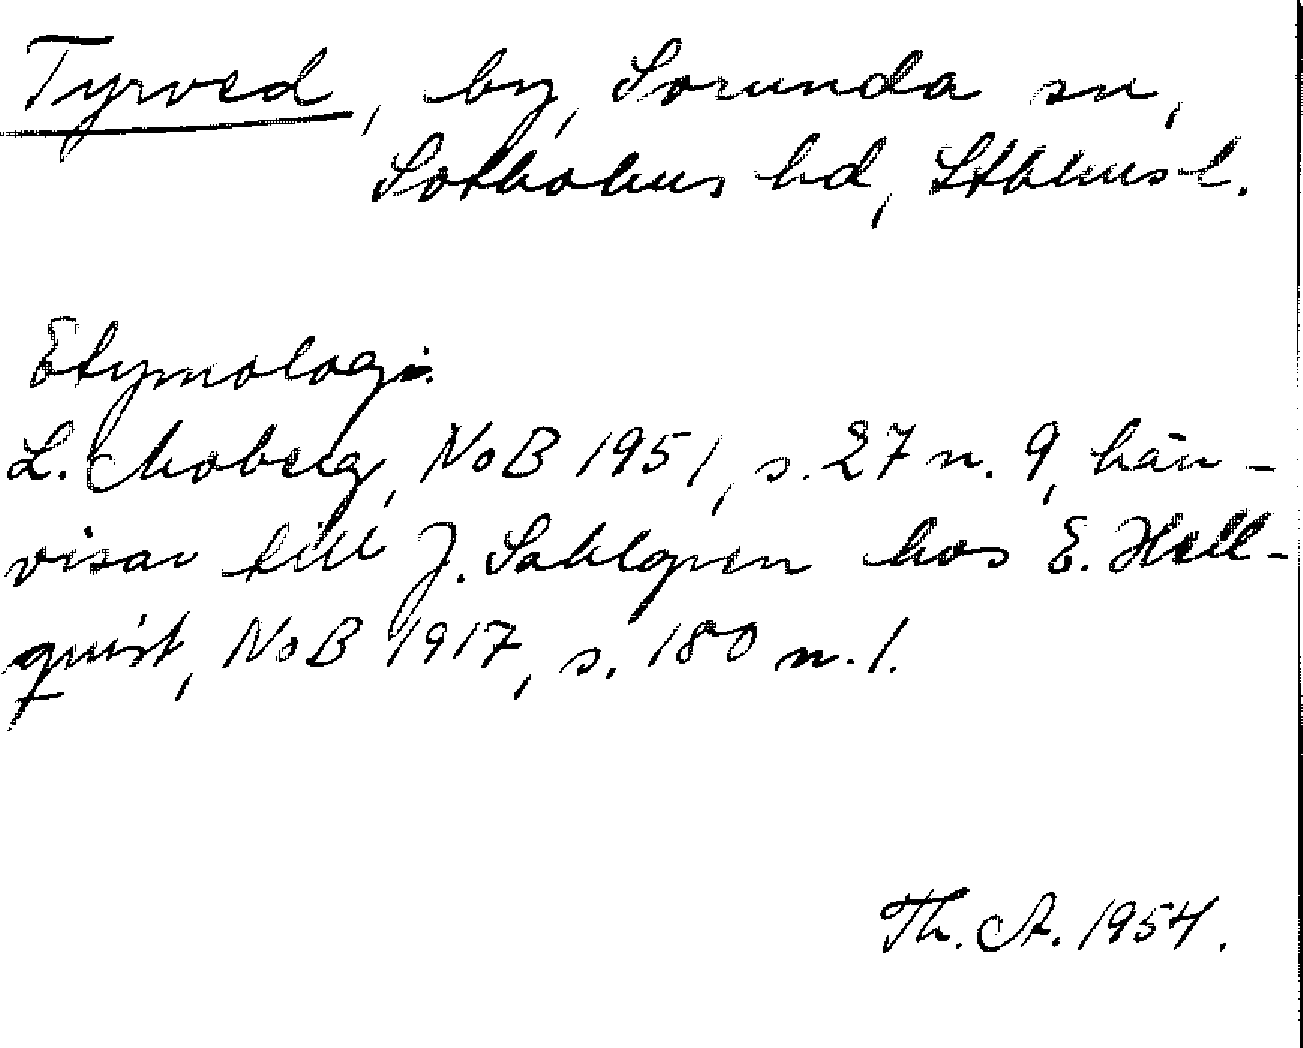 Tyrved, by, Sorunda sn,
Sotholms hd, Stblms l.
Etymologi.
L. Moberg, NoB 1951, s. 27 n. 9, hän-
visar till J. Sahlgren hos E. Hell-
quist, NoB 1917, s. 180 n. 1.
Th. A. 1954.